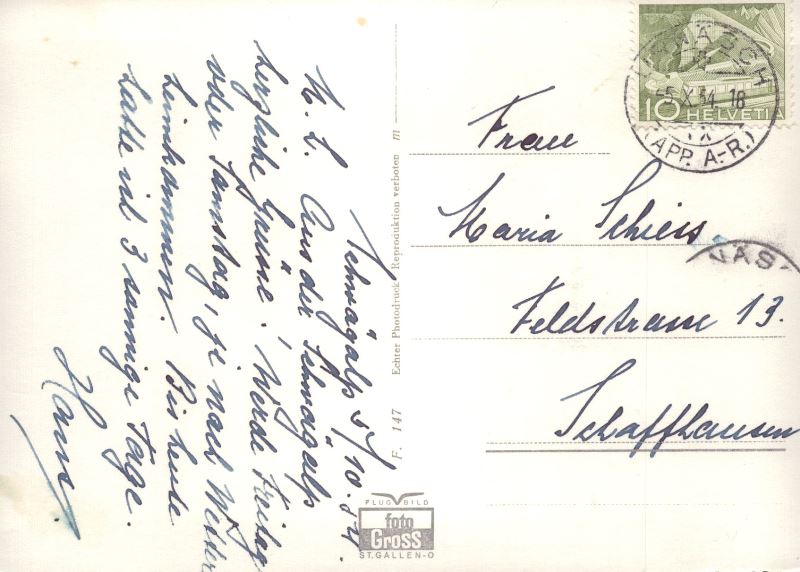 Schwägalp 5/10.54.
M. L. Aus der Schwägalp
herzliche Grüsse. Werde Freitag
oder Samstag, je nach Wetter
heimkommen. Bis heute
hatte viel 3 sonnige Tage.
Hans.
F. 147 Echter Photodruck Reproduktion verboten m
FLUGBILD
foto
Gross
ST. GALLEN-O
10 HELVETIA
5.X.54. 18
(APP. A.-R.)
Frau
Maria Schiess
Feldstrasse 13.
Schaffhausen